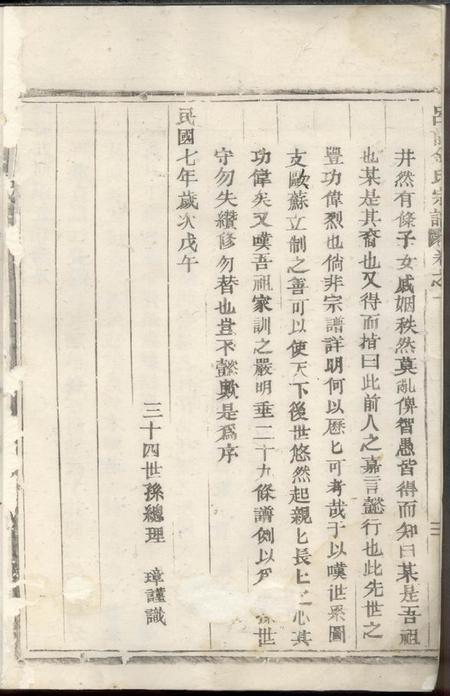 氏宗譜 卷之一
三
井然有條子女戚姻秩然莫亂俾智愚皆得而知曰某是吾祖
也某是其裔也又得而指曰此前人之嘉言懿行也此先世之
豐功偉烈也倘非宗譜詳明何以歷匕可考哉于以嘆世系圖
支歐蘇立制之善可以使天下後世悠然起親匕長匕之心其
功偉矣又嘆吾祖家訓之嚴明垂二十九條譜例以 世
守勿失纘修勿替也豈不懿歟是為序
民國七年歲次戊午
三十四世孫總理 璋謹識